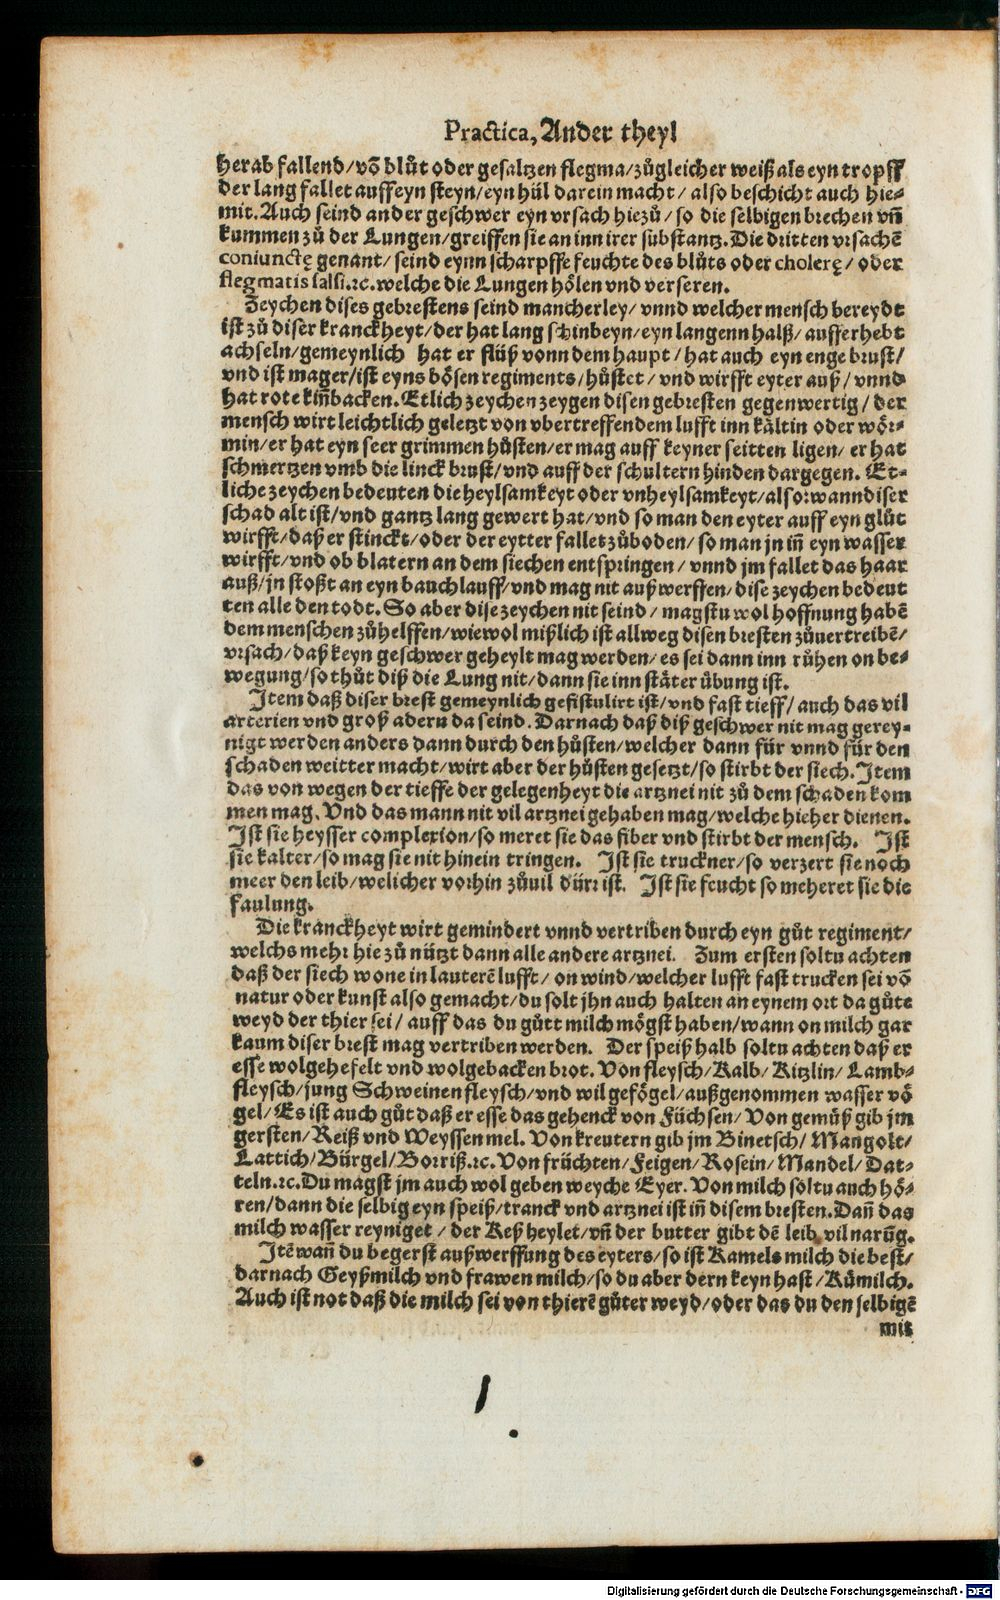 Practica, Ander theyl
herab fallend/võ blůt oder gesaltzen flegma/zůgleicher weiß als eyn tropff
der lang fallet auff eyn steyn/eyn hül darein macht/ also beschicht auch hie-
mit. Auch seind ander geschwer eyn vrsach hiezů/ so die selbigen brechen vñ
kummen zů der Lungen/greiffen sie an inn irer substantz. Die dritten vrsachẽ
coniunctę genant/ seind eynn scharpffe feuchte des blůts oder cholerę/ oder
flegmatis salsi.ꝛc. welche die Lungen hölen vnd verseren.
Zeychen dises gebrestens seind mancherley/ vnnd welcher mensch bereydt
ist zů diser kranckheyt/der hat lang schinbeyn/eyn langenn halß/ aufferhebt
achseln/gemeynlich hat er flüß vonn dem haupt/ hat auch eyn enge brust/
vnd ist mager/ist eyns bösen regiments/hůstet/ vnd wirfft eyter auß/ vnnd
hat rote kiñbacken. Etlich zeychen zeygen disen gebresten gegenwertig/ der
mensch wirt leichtlich geletzt von vbertreffendem lufft inn kältin oder wör-
min/er hat eyn seer grimmen hůsten/er mag auff keyner seitten ligen/ er hat
schmertzen vmb die linck brust/vnd auff der schultern hinden dargegen. Et-
liche zeychen bedeuten die heylsamkeyt oder vnheylsamkeyt/also: wann diser
schad alt ist/vnd gantz lang gewert hat/vnd so man den eyter auff eyn glůt
wirfft/daß er stinckt/oder der eytter fallet zůboden/ so man jn iñ eyn wasser
wirfft/vnd ob blatern an dem siechen entspringen/ vnnd jm fallet das haar
auß/jn stoßt an eyn bauchlauff/vnd mag nit außwerffen/dise zeychen bedeut
ten alle den todt. So aber dise zeychen nit seind/ magstu wol hoffnung habẽ
dem menschen zůhelffen/wiewol mißlich ist allweg disen bresten zůuertreibẽ/
vrsach/daß keyn geschwer geheylt mag werden/es sei dann inn růhen on be-
wegung/so thůt diß die Lung nit/dann sie inn stäter übung ist.
Item daß diser brest gemeynlich gefistulirt ist/vnd fast tieff/ auch das vil
arterien vnd groß adern da seind. Darnach daß diß geschwer nit mag gerey-
nigt werden anders dann durch den hůsten/welcher dann für vnnd für den
schaden weitter macht/wirt aber der hůsten gesetzt/so stirbt der siech. Item
das von wegen der tieffe der gelegenheyt die artznei nit zů dem schaden kom
men mag. Vnd das mann nit vil artznei gehaben mag/welche hieher dienen.
Ist sie heysser complexion/so meret sie das fiber vnd stirbt der mensch. Ist
sie kalter/so mag sie nit hinein tringen. Ist sie truckner/so verzert sie noch
meer den leib/welicher vorhin zůuil dürr ist. Ist sie feucht so meheret sie die
faulung.
Die kranckheyt wirt gemindert vnnd vertriben durch eyn gůt regiment/
welchs mehr hie zů nützt dann alle andere artznei. Zum ersten soltu achten
daß der siech wone in lauterẽ lufft/ on wind/welcher lufft fast trucken sei võ
natur oder kunst also gemacht/du solt jhn auch halten an eynem ort da gůte
weyd der thier sei/ auff das du gůtt milch mögst haben/wann on milch gar
kaum diser brest mag vertriben werden. Der speiß halb soltu achten daß er
esse wolgehefelt vnd wolgebacken brot. Von fleysch/Kalb/ Kitzlin/ Lamb-
fleysch/jung Schweinen fleysch/vnd wil gefögel/außgenommen wasser vö
gel/ Es ist auch gůt daß er esse das gehenck von Füchsen/ Von gemůß gib jm
gersten/Reiß vnd Weyssen mel. Von kreutern gib jm Binetsch/ Mangolt/
Lattich/Bürgel/Borriß.ꝛc. Von früchten/Feigen/Rosein/Mandel/Dat-
teln.ꝛc. Du magst jm auch wol geben weyche Eyer. Von milch soltu auch hö-
ren/dann die selbig eyn speiß/tranck vnd artznei ist iñ disem bresten. Dañ das
milch wasser reyniget/ der Keß heylet/vñ der butter gibt dẽ leib vil narũg.
Itẽ wañ du begerst außwerffung des eyters/so ist Kamels milch die best/
darnach Geyßmilch vnd frawen milch/so du aber dern keyn hast/Kůmilch.
Auch ist not daß die milch sei von thierẽ gůter weyd/oder das du den selbigẽ
mit
Digitalisierung gefördert durch die Deutsche Forschungsgemeinschaft - DFG